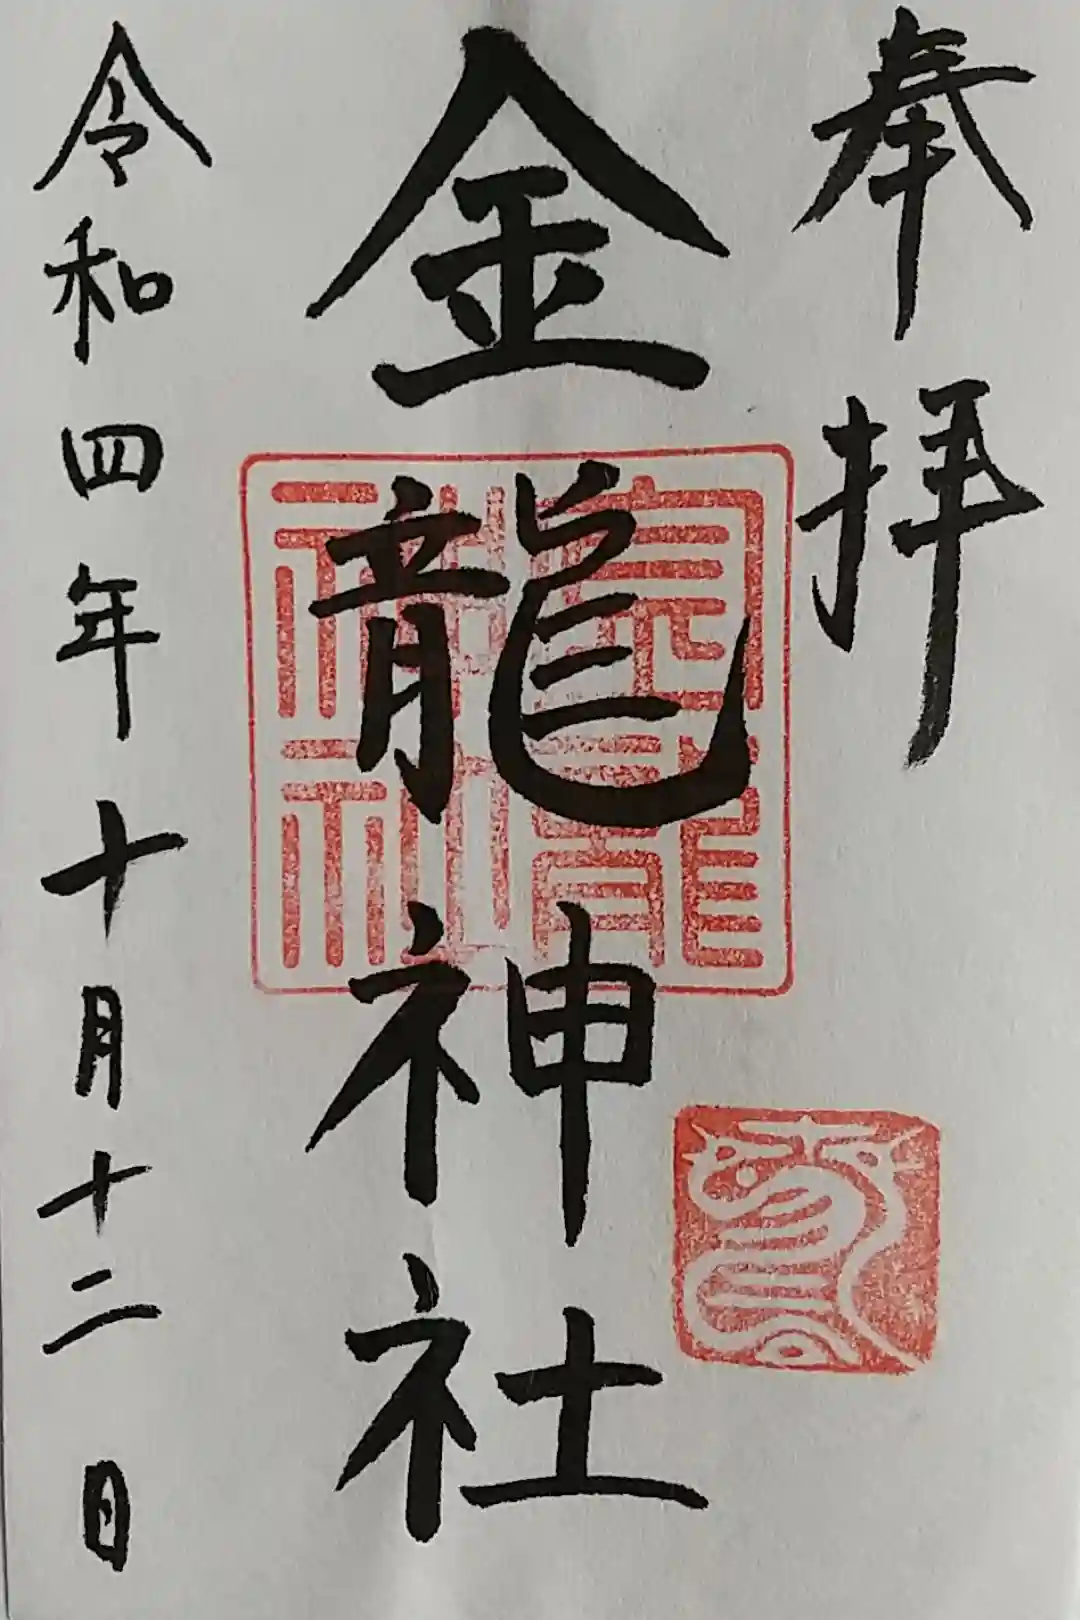 奉拝
金龍神社
金龍神社
令和四年十月十二日